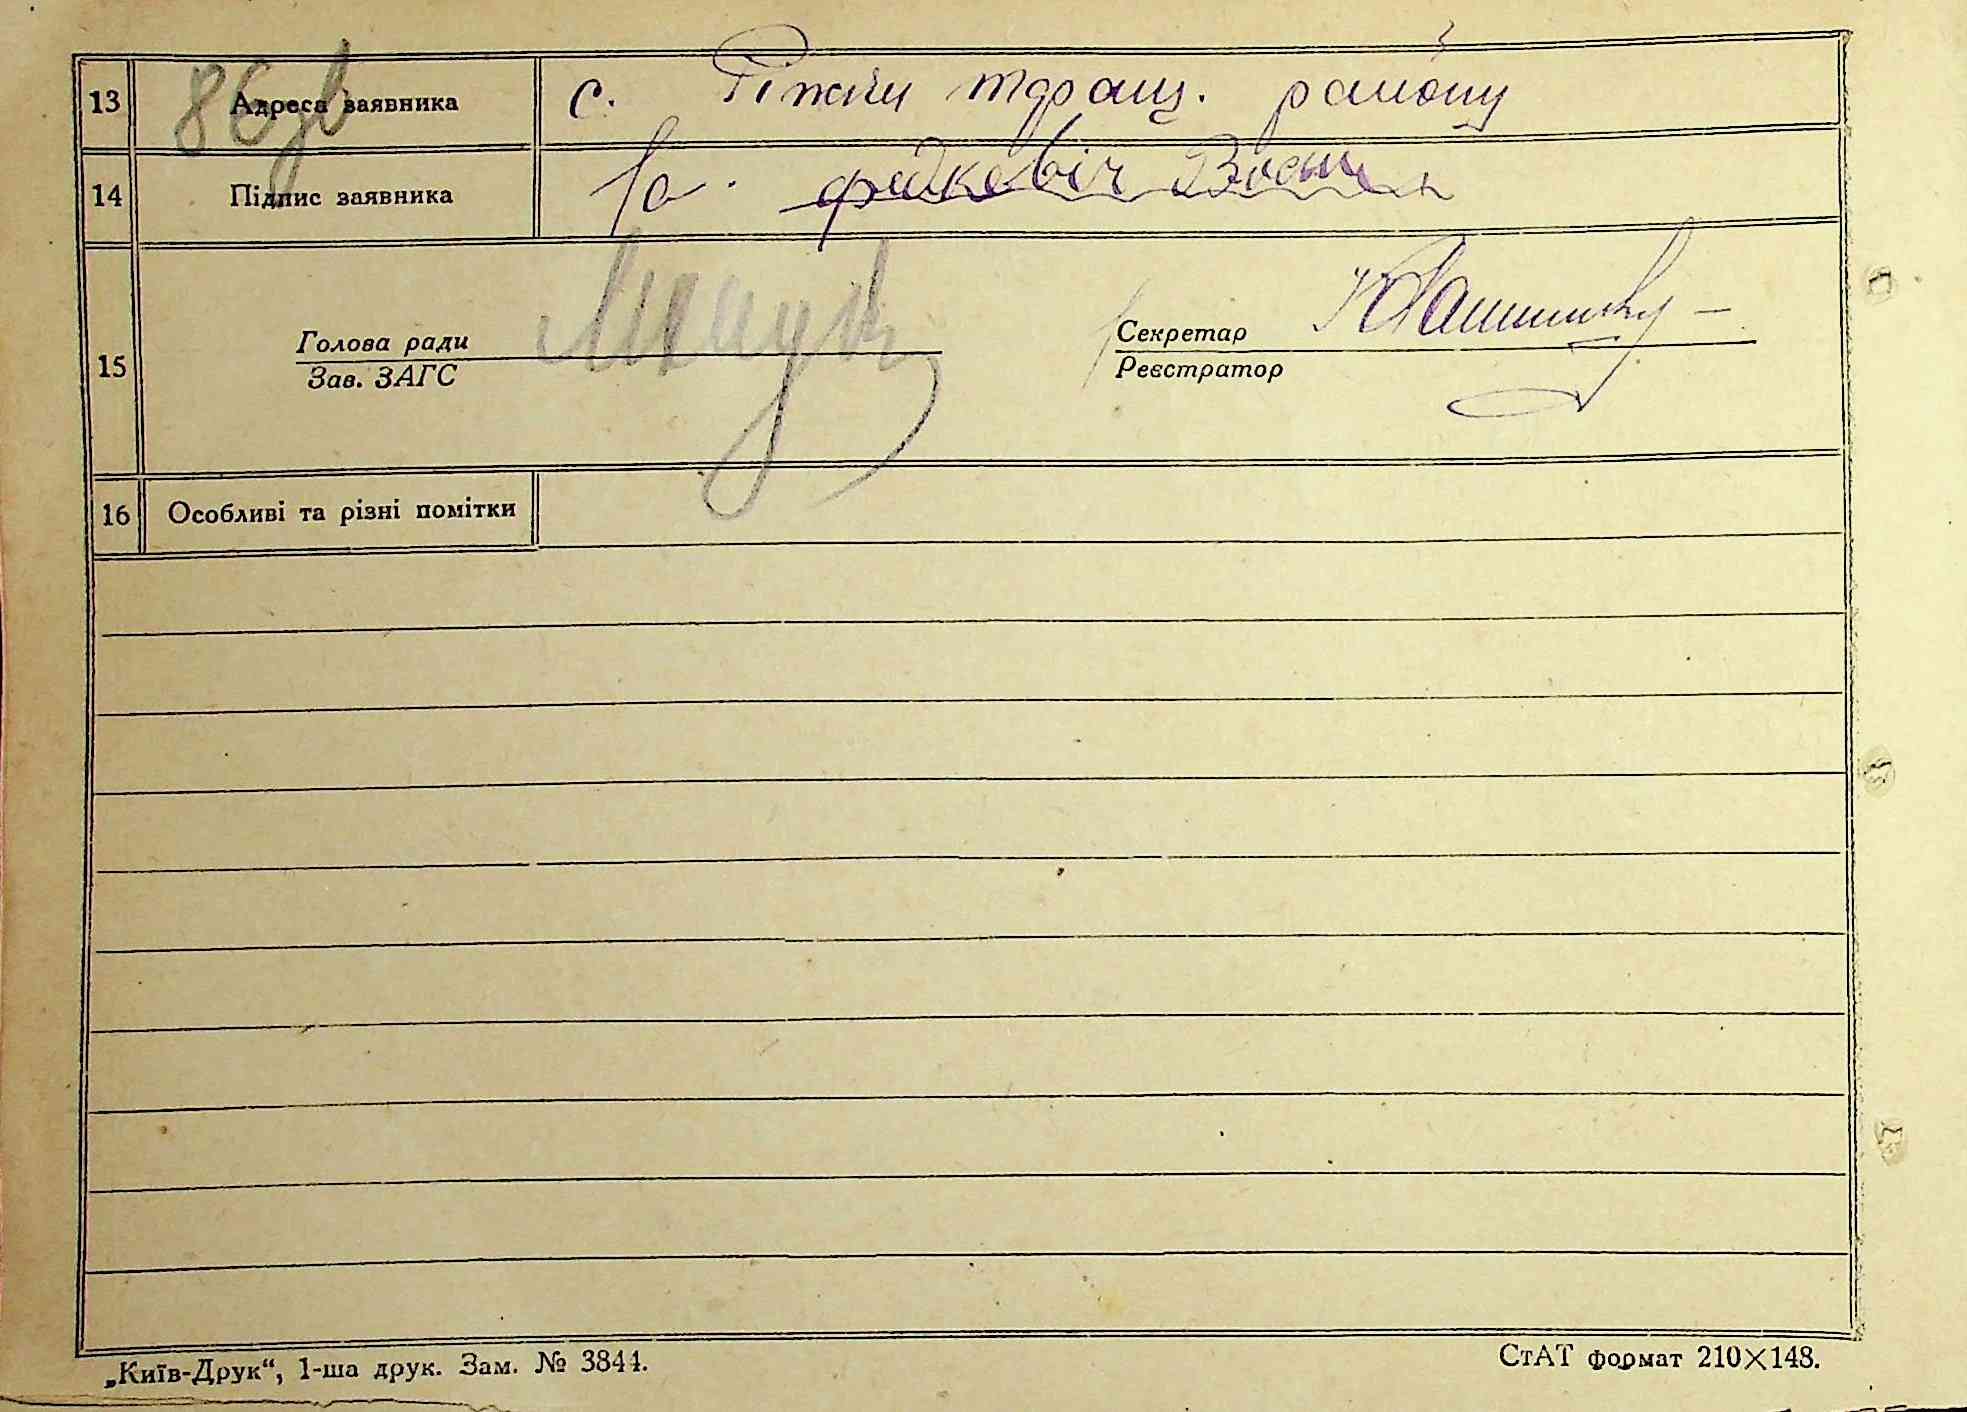 86 зв
13 Адреса заявника с. Ріжки тдращ. району
14 Підпис заявника /а. федкевіч
15 Голова ради Секретар
Зав. ЗАГС Реєстратор
16 Особливі та різні помітки
„Київ-Друк“, 1-ша друк. Зам. № 3844. СтАТ формат 210×148.